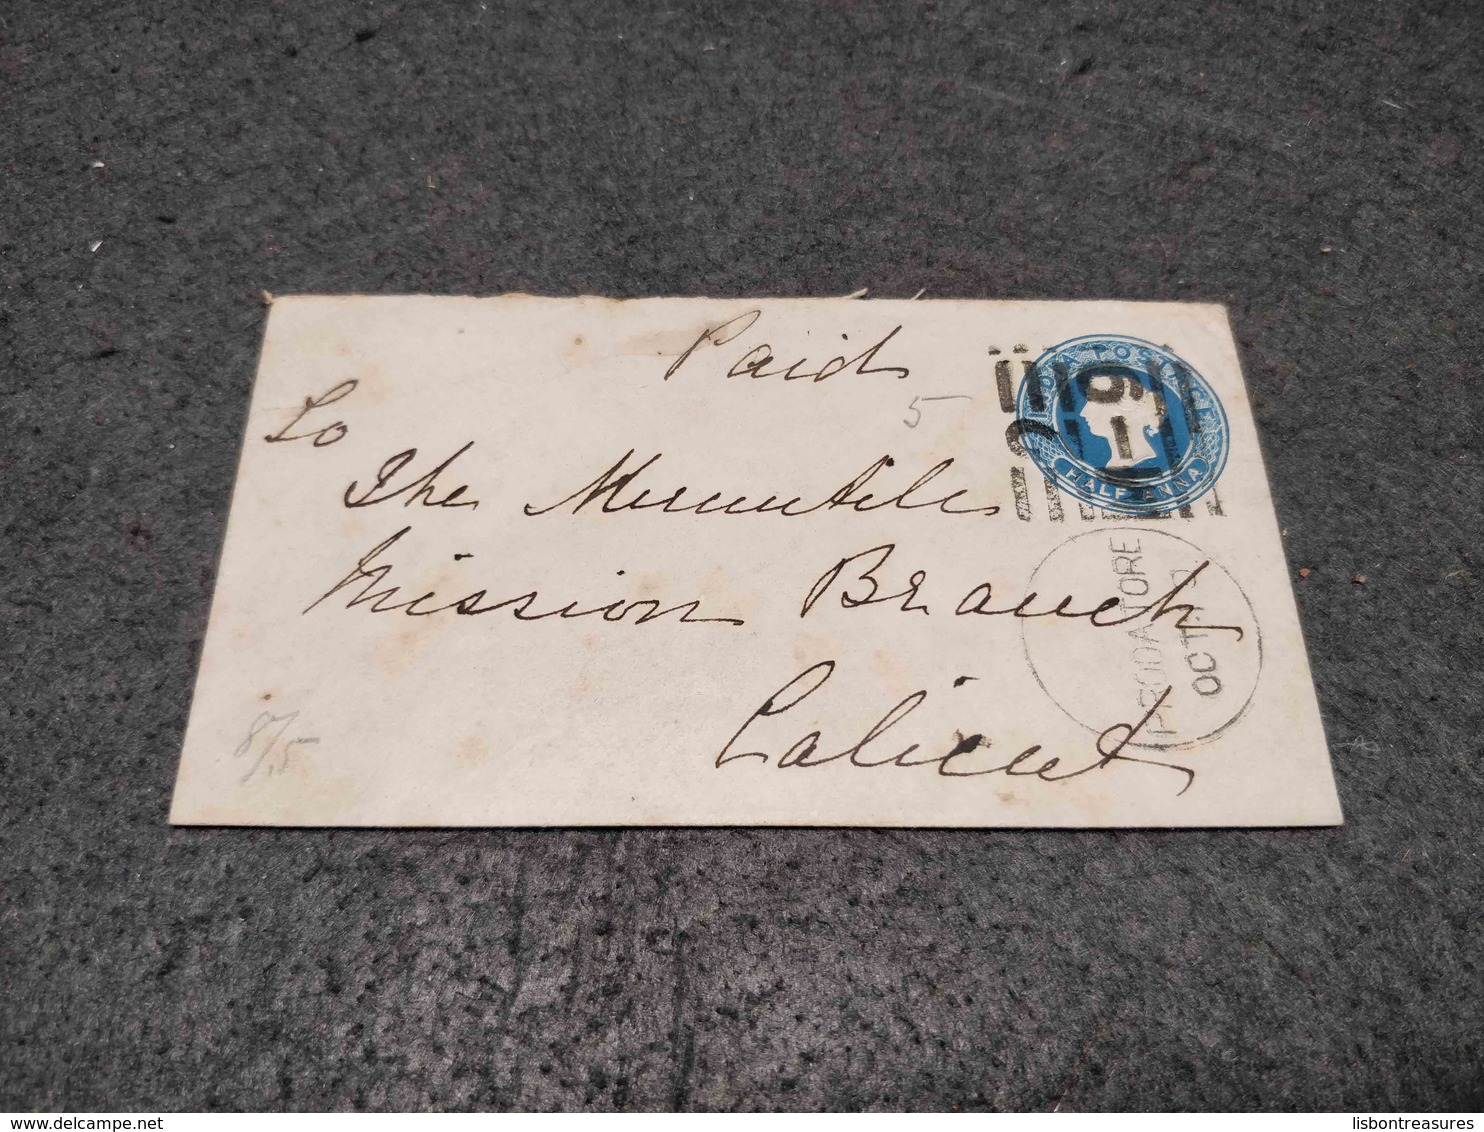 Paid
5
To
The Mercantile
Mission Branch
Calicut
8/5
INDIA POSTAGE
HALF ANNA
PRODATORE
OCT
delcampe.net
lisbontreasures